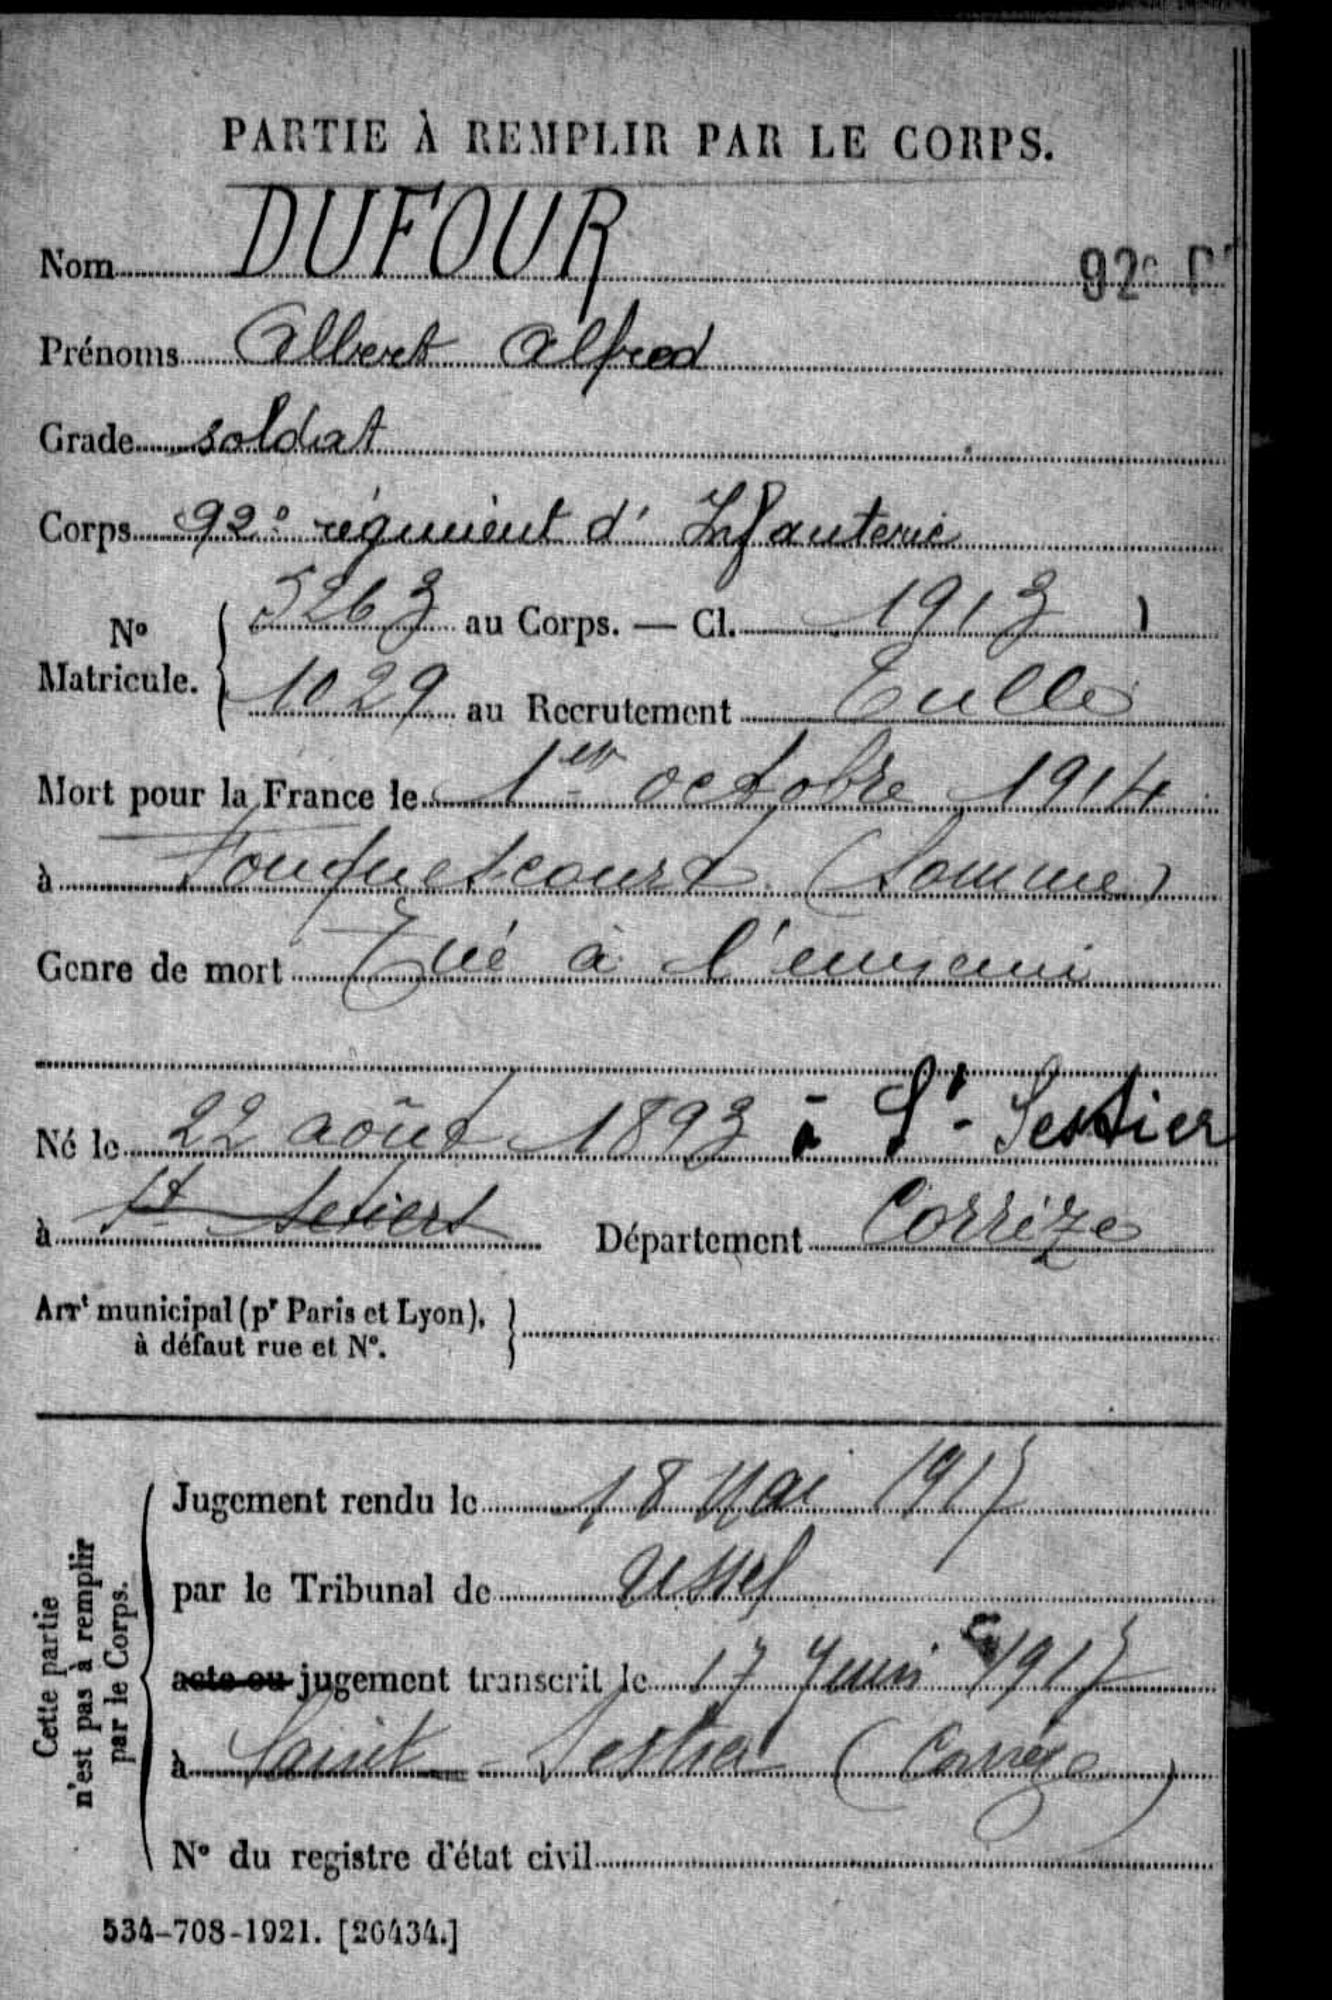 PARTIE À REMPLIR PAR LE CORPS.
Nom DUFOUR
92e R
Prénoms Albert Alfred
Grade soldat
Corps 92e régiment d'Infanterie
No Matricule. { 5263 au Corps. — Cl. 1913
1029 au Recrutement Tulle
Mort pour la France le 1er octobre 1914
à Fouquescourt (Somme)
Genre de mort Tué à l'ennemi
Né le 22 août 1893 à St-Sestier
à St Setiers Département Corrèze
Arrt municipal (pr Paris et Lyon), à défaut rue et No. }
Cette partie n'est pas à remplir par le Corps.
Jugement rendu le 18 Mai 1917
par le Tribunal de Ussel
acte ou jugement transcrit le 17 Juin 1917
à Saint-Sestier (Corrèze)
No du registre d'état civil
534-708-1921. [26434.]